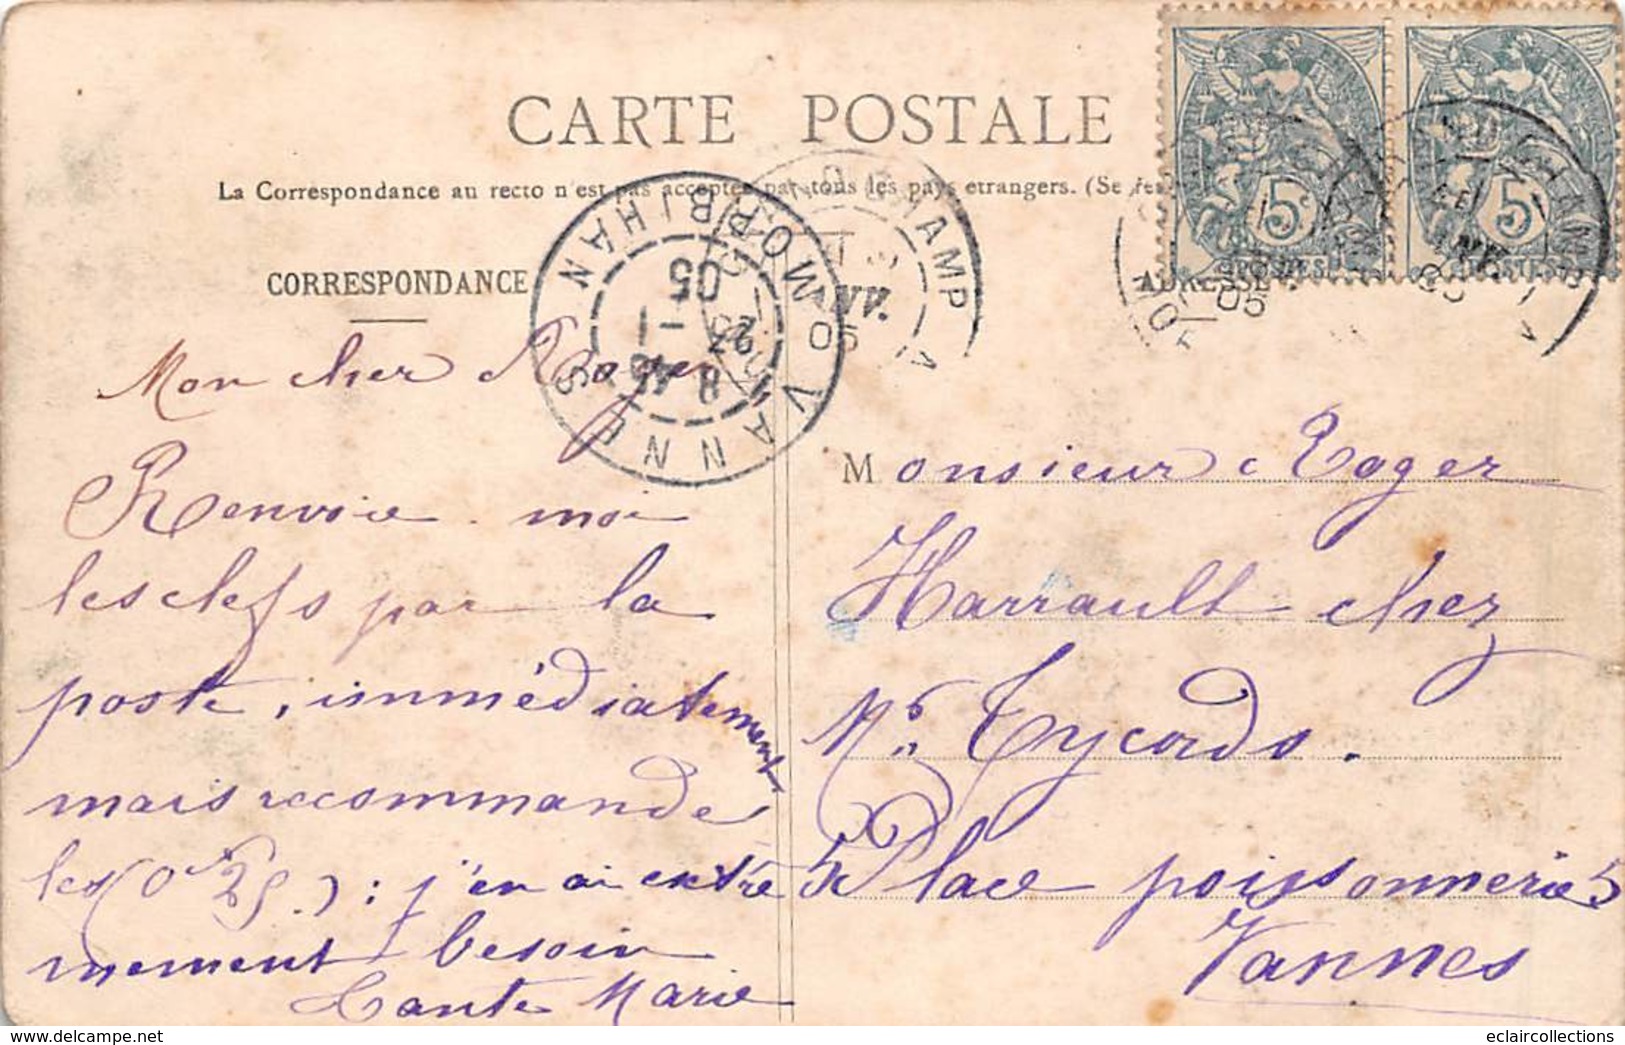 CARTE POSTALE
La Correspondance au recto n'est pas acceptée par tous les pays étrangers. (Se
CORRESPONDANCE
ADRESSE
5c
5c
POSTES
VANNES
MORBIHAN
8
23 - 1
05
05
Mon cher Roger
Renvoie moi
les clefs par la
poste, immédiatement
mais recommande
les (0f 25) : j'en ai extrê
mement besoin
Tante Marie
Monsieur Roger
Harrault chez
Mr
5 Place poissonnerie 5
Vannes
eclaircollections